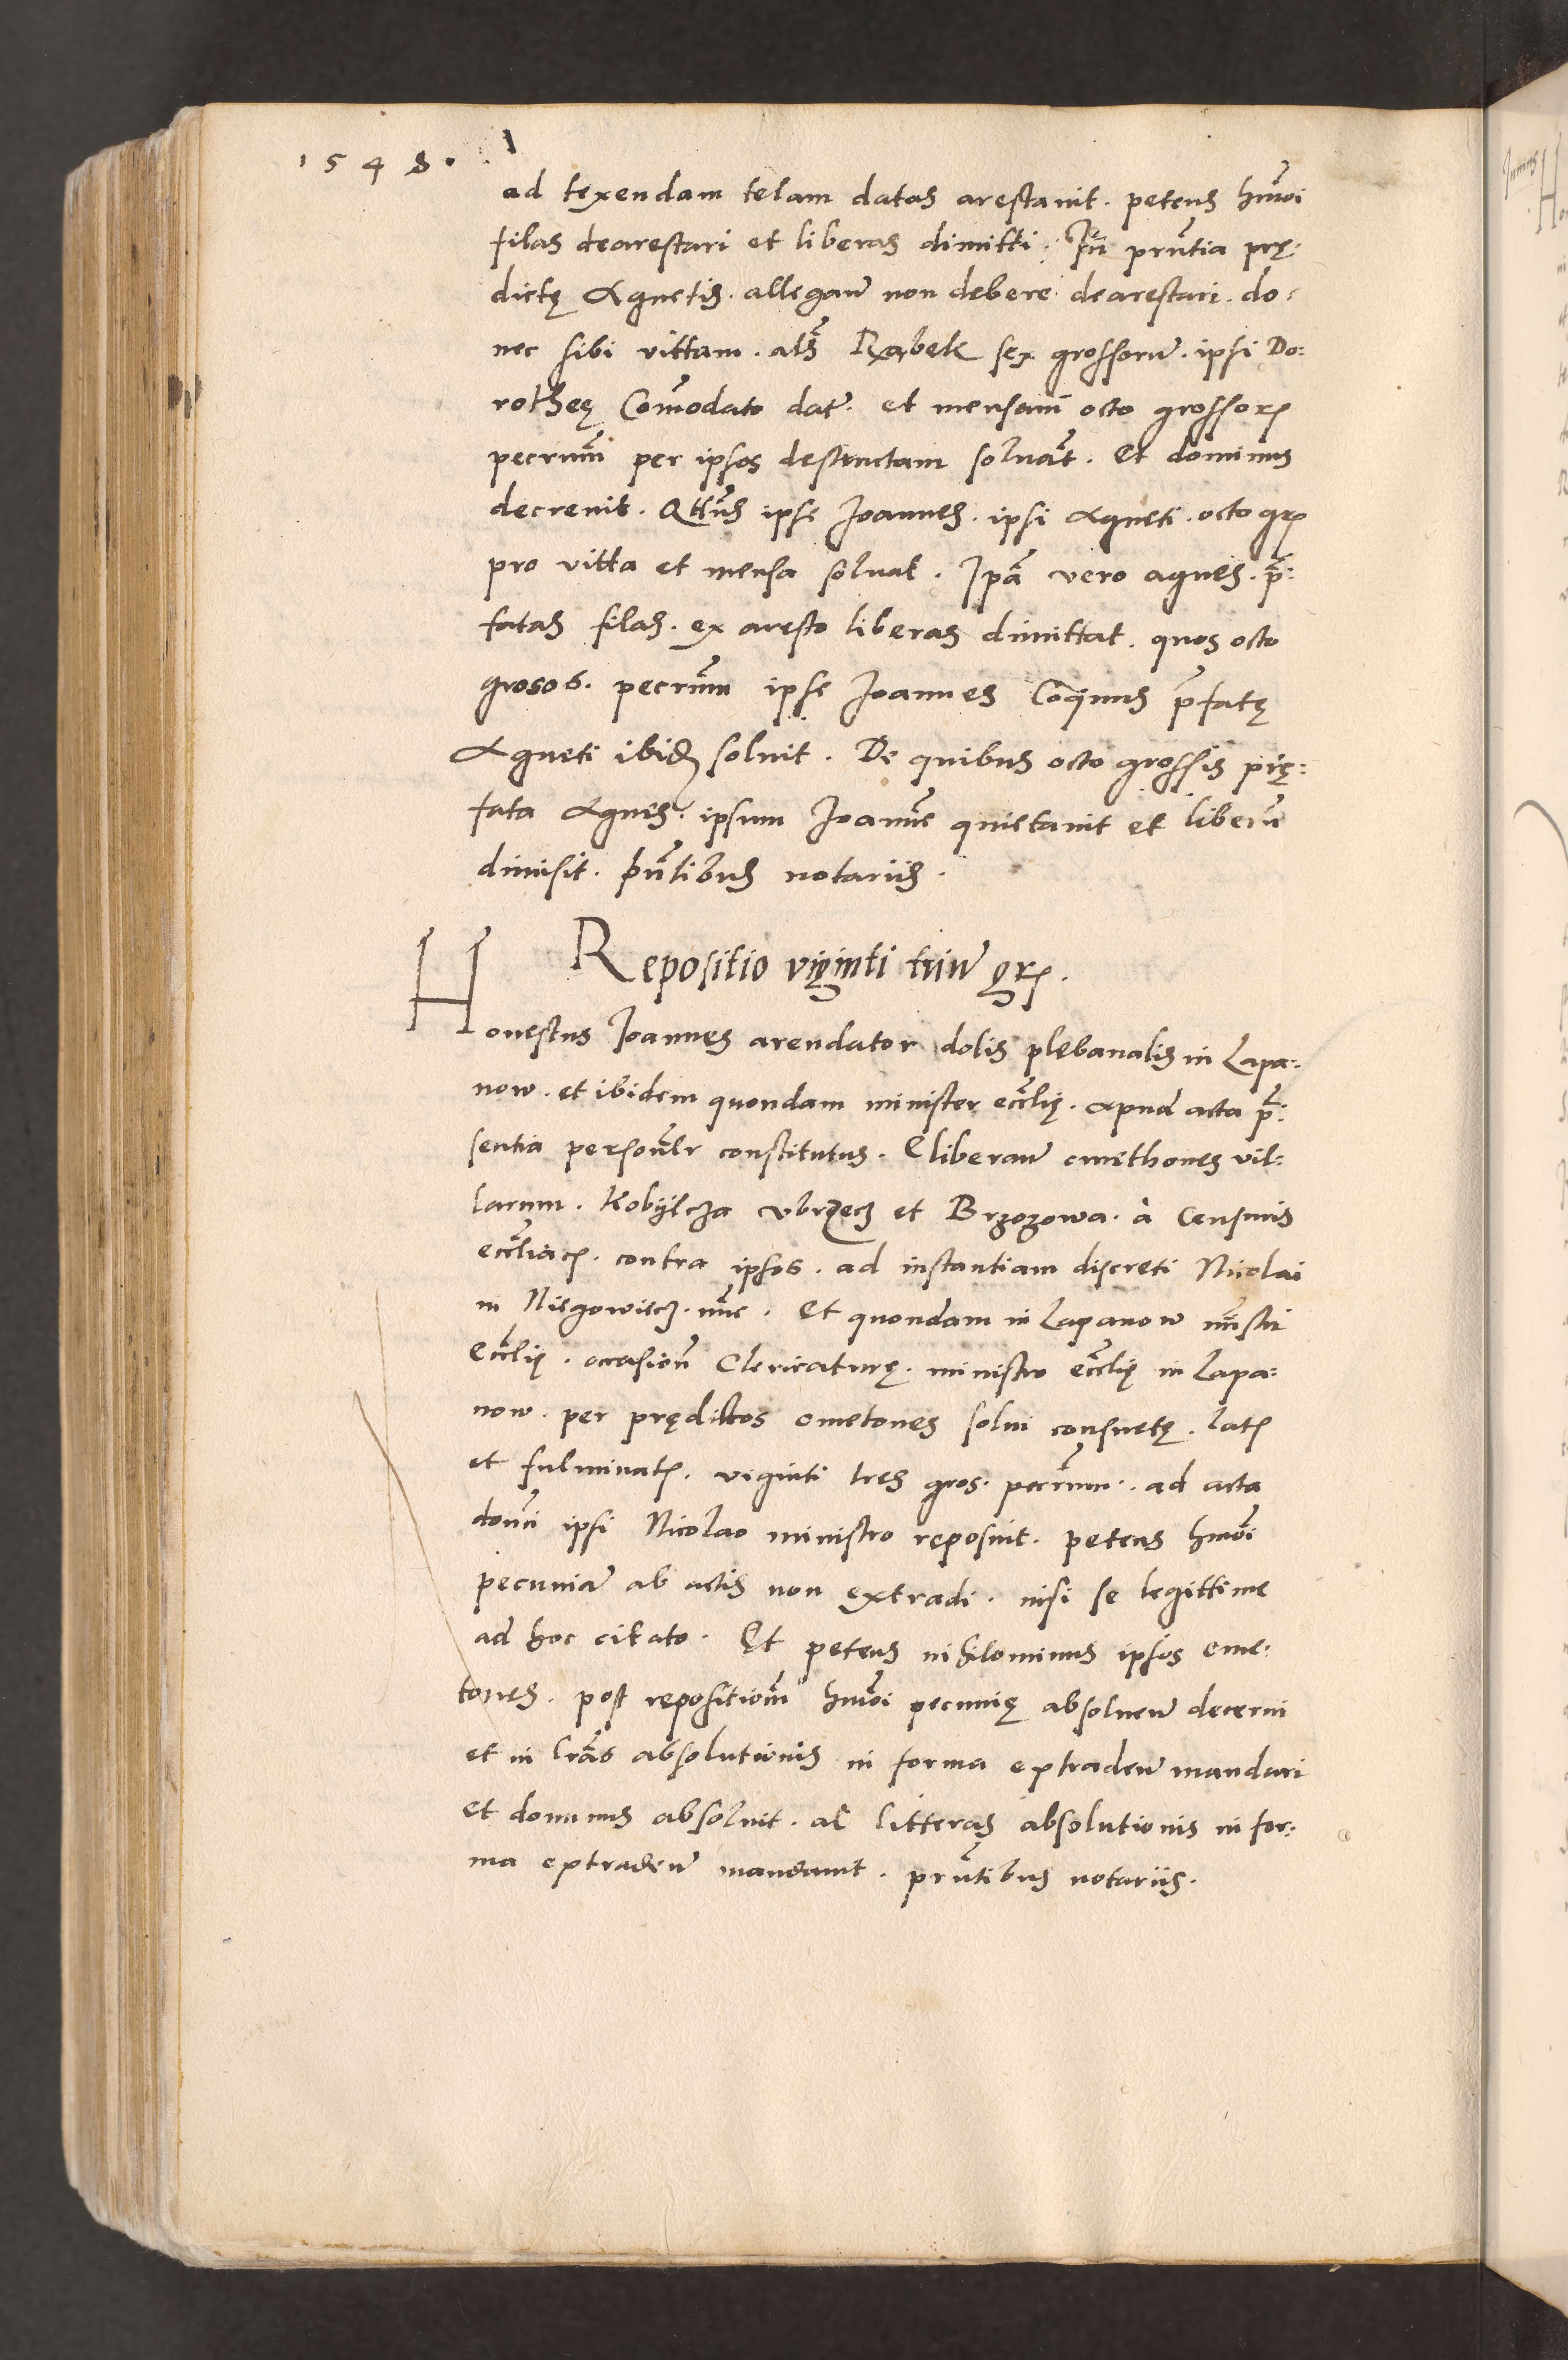 1548.
ad texendam telam datas arestavit. petens hmoi
filas dearestari et liberas dimitti. In prntia prę:
dictę Agnetis. allegan non debere dearestari. do:
nec sibi vittam. als Rąbek sex grossorum. ipsi Do:
rotheę Commodato datam. et mensam octo grossorum
pecunia per ipsos destructam solvant. Et dominus
decrevit. Qtnus ipse Joannes. ipsi Agneti. octo gr.
pro vitta et mensa solvat. Ipsa vero agnes. prę:
fatas filas. ex aresto liberas dimittat. quos octo
grosos. pecunia ipse Joannes Coquus prefatę
Agneti ibidem solvit. De quibus octo grossis prę:
fata Agnes. ipsum Joannem quietavit et liberum
dimisit. prntibus notariis.
Repositio viginti trium gr.
Honestus Joannes arendator dotis plebanalis in Lapa:
now. et ibidem quondam minister ecclię. Apud acta prę:
sentia personalr constitutus. Eliberan cmethones vil:
larum. Kobijlcza Ubrzecz et Brzozowa. à Censuris
eccliacis. contra ipsos. ad instantiam discreti Nicolai
in Niegowiecz. nunc. Et quondam in Lapanow mnstri
Ecclię. occasione Clericaturę. ministro ecclię in Lapa:
now. per prędictos cmetones solvi consuetę. latis
et fulminatis. viginti tres gros. pecunia. ad acta
domni ipsi Nicolao ministro reposuit. petens hmoi
pecuniam ab actis non extradi. nisi se legittime
ad hoc citato. Et petens nihilominus ipsos cme:
tones. post repositionem hmoi pecunię absolven decerni
et in lras absolutionis in forma extraden mandari
et dominus absolvit. ac litteras absolutionis in for:
ma extraden mandavit. prntibus notariis.